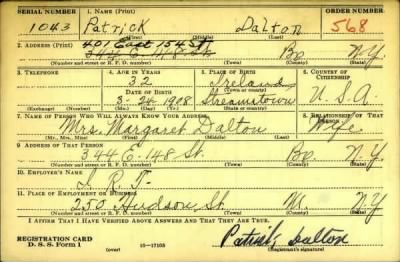 SERIAL NUMBER 1. NAME (Print) ORDER NUMBER
1043 Patrick Dalton 568
(First) (Middle) (Last)
2. ADDRESS (Print) 401 East 154 St
344 E. 148 St. Bx. N.Y.
(Number and street or R. F. D. number) (Town) (County) (State)
3. TELEPHONE 4. AGE IN YEARS 5. PLACE OF BIRTH 6. COUNTRY OF CITIZENSHIP
32 Ireland
DATE OF BIRTH (Town or county)
3-24-1908 Streamstown U.S.A.
(Exchange) (Number) (Mo.) (Day) (Yr.) (State or country)
7. NAME OF PERSON WHO WILL ALWAYS KNOW YOUR ADDRESS 8. RELATIONSHIP OF THAT PERSON
Mrs. Margaret Dalton Wife
(Mr., Mrs., Miss) (First) (Middle) (Last)
9. ADDRESS OF THAT PERSON
344 E. 148 St. Bx. N.Y.
(Number and street or R. F. D. number) (Town) (County) (State)
10. EMPLOYER'S NAME
I. R. T.
11. PLACE OF EMPLOYMENT OR BUSINESS
250 Hudson St. M. N.Y.
(Number and street or R. F. D. number) (Town) (County) (State)
I AFFIRM THAT I HAVE VERIFIED ABOVE ANSWERS AND THAT THEY ARE TRUE.
REGISTRATION CARD
D. S. S. Form 1 (over) 16—17105 Patrick Dalton
(Registrant's signature)